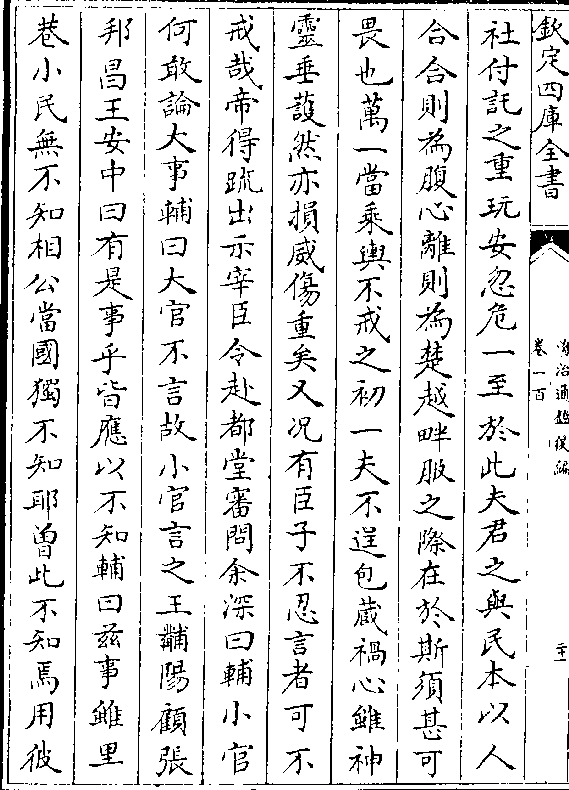 欽定四庫全書
資治通鑑後編
卷一百
社付託之重玩安忽危一至於此夫君之與民本以人
合合則為腹心離則為楚越畔服之際在於斯須甚可
畏也萬一當乘輿不戒之初一夫不逞包蔵禍心雖神
靈垂䕶然亦損威傷重矣又况有臣子不忍言者可不
戒哉帝得疏出示宰臣令赴都堂審問余深曰輔小官
何敢論大事輔曰大官不言故小官言之王黼陽顧張
邦昌王安中曰有是事乎皆應以不知輔曰兹事雖里
巷小民無不知相公當國獨不知耶曽此不知焉用彼